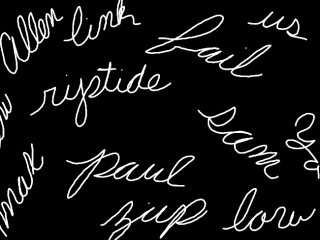 Allen
link
us
fail
riptide
sam
max
paul
zup
low